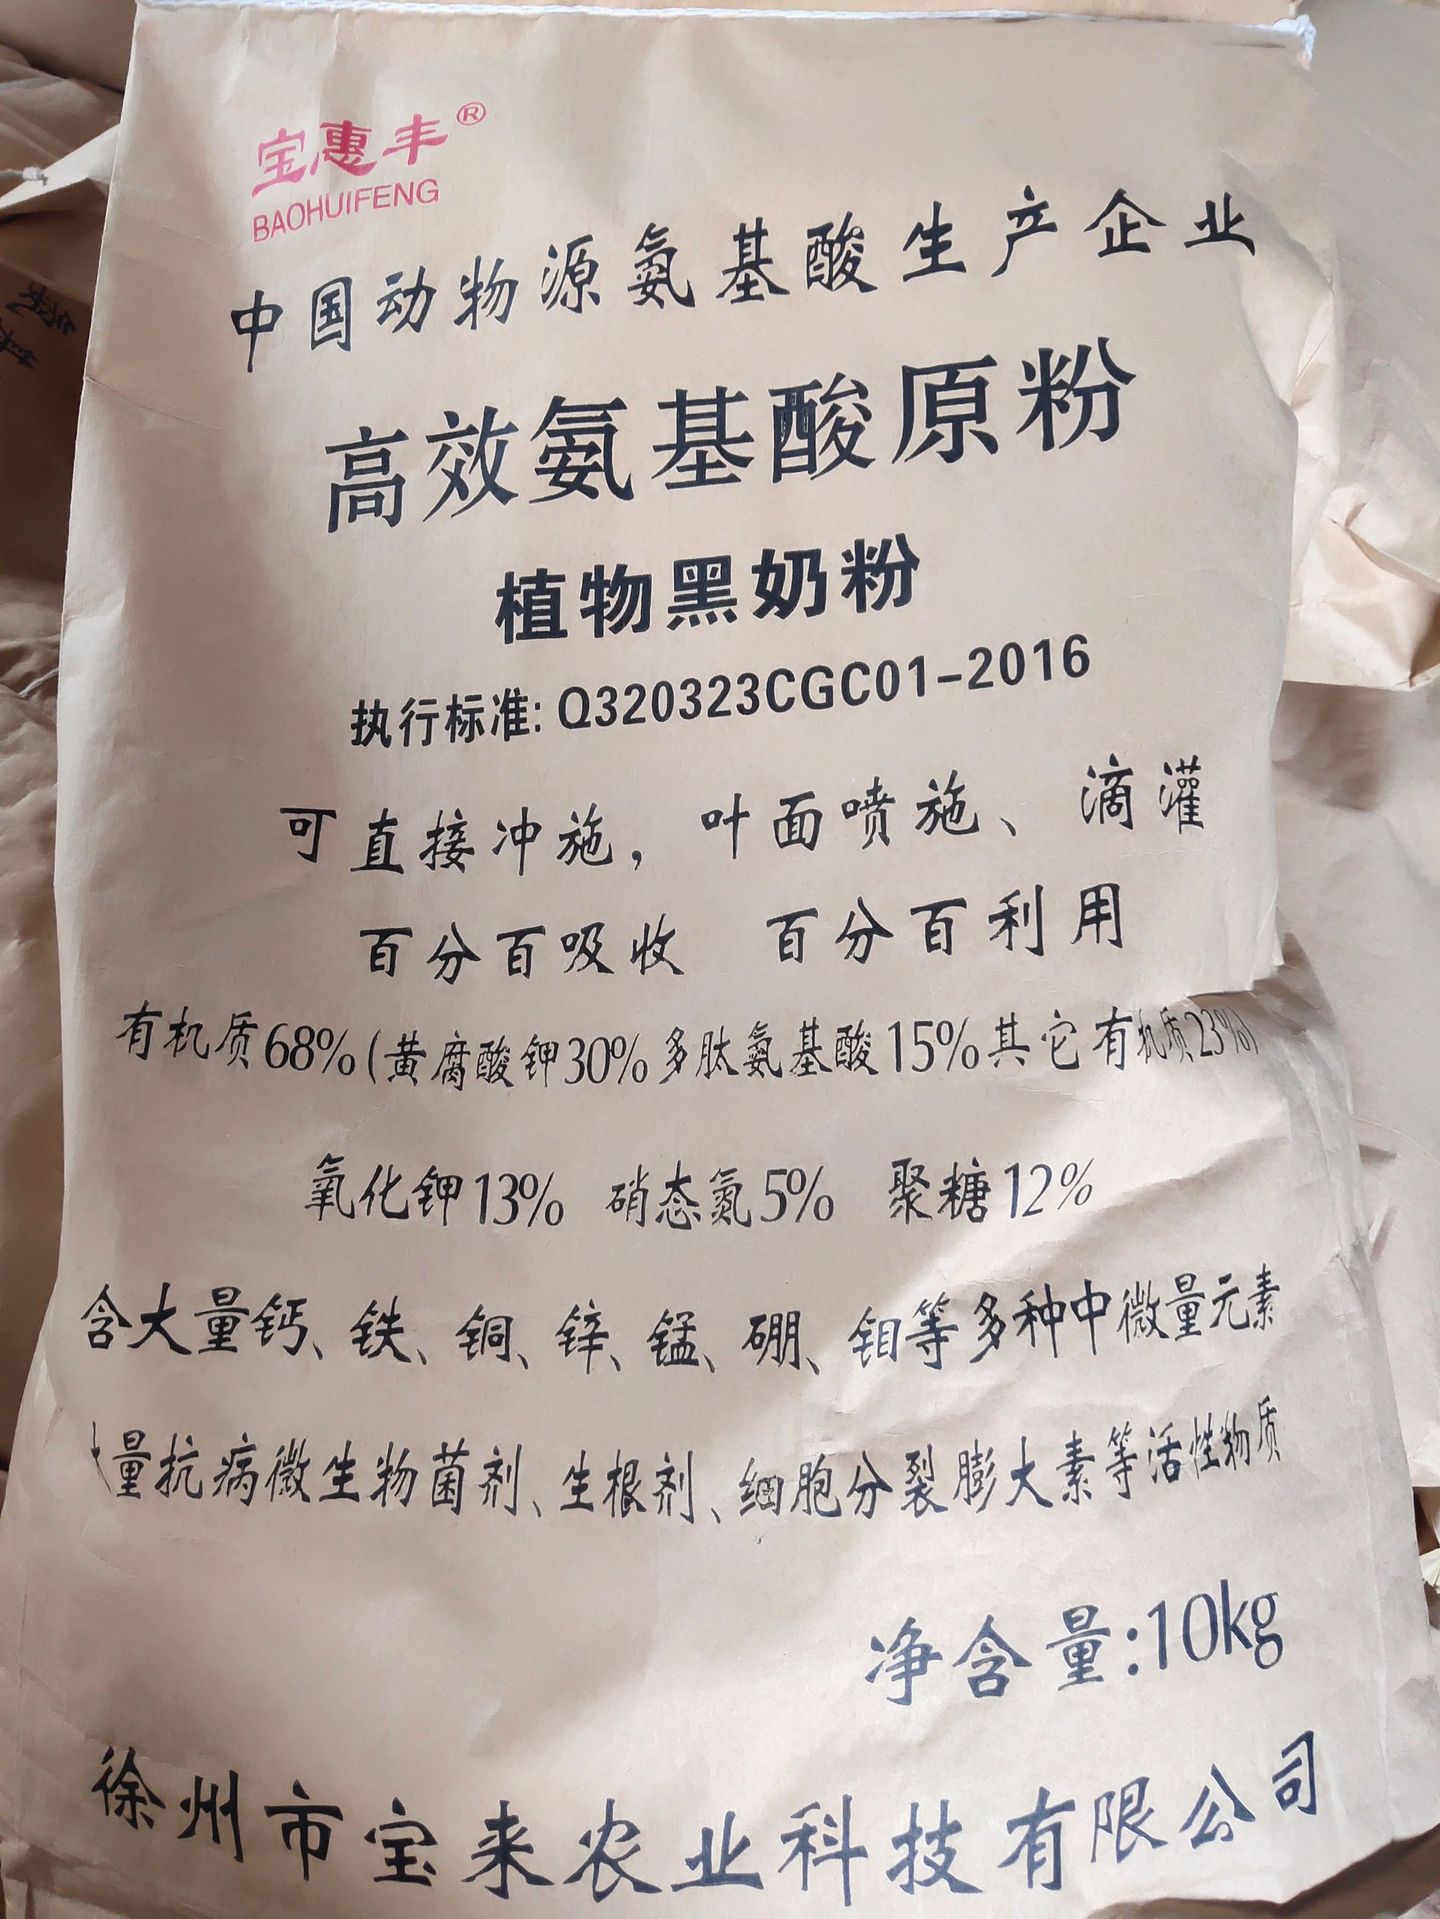 宝惠丰®
BAOHUIFENG
中国动物源氨基酸生产企业
高效氨基酸原粉
植物黑奶粉
执行标准: Q320323CGC01-2016
可直接冲施，叶面喷施、滴灌
百分百吸收 百分百利用
有机质68%(黄腐酸钾30%多肽氨基酸15%其它有机质23%)
氧化钾13% 硝态氮5% 聚糖12%
含大量钙、铁、铜、锌、锰、硼、钼等多种中微量元素
大量抗病微生物菌剂、生根剂、细胞分裂膨大素等活性物质
净含量:10kg
徐州市宝来农业科技有限公司